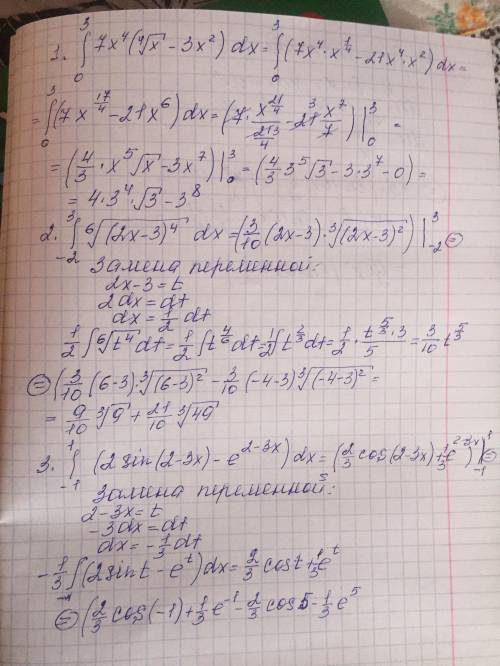 1. ∫₀³ 7x⁴(⁴√x − 3x²) dx = ∫₀³ (7x⁴·x^(1/4) − 21x⁴·x²) dx =
= ∫₀³ (7x^(17/4) − 21x⁶) dx = (7·x^(21/4)/(21/4) − 21 x⁷/7)|₀³ =
= (4/3·x⁵√x − 3x⁷)|₀³ = (4/3 3⁵√3 − 3·3⁷ − 0) =
= 4·3⁴·√3 − 3⁸
2. ∫₋₂³ ⁶√(2x−3)⁴ dx = (3/10 (2x−3)·³√(2x−3)²)|₋₂³ ⊜
Замена переменной:
2x−3=t
2dx=dt
dx=1/2 dt
1/2 ∫ ⁶√t⁴ dt = 1/2 ∫ t^(4/6) dt = 1/2 ∫ t^(2/3) dt = 1/2 · t^(5/3)·3/5 = 3/10 t^(5/3)
⊜ (3/10 (6−3)·³√(6−3)² − 3/10 (−4−3) ³√(−4−3)² =
= 9/10 ³√9 + 21/10 ³√49
3. ∫₋₁¹ (2sin(2−3x) − e^(2−3x)) dx = (2/3 cos(2−3x) + 1/3 e^(2−3x))|₋₁¹ ⊜
Замена переменной:
2−3x=t
−3dx=dt
dx=−1/3 dt
−1/3 ∫(2sint − eᵗ) dx = 2/3 cost + 1/3 eᵗ
⊜ (2/3 cos(−1) + 1/3 e⁻¹ − 2/3 cos5 − 1/3 e⁵